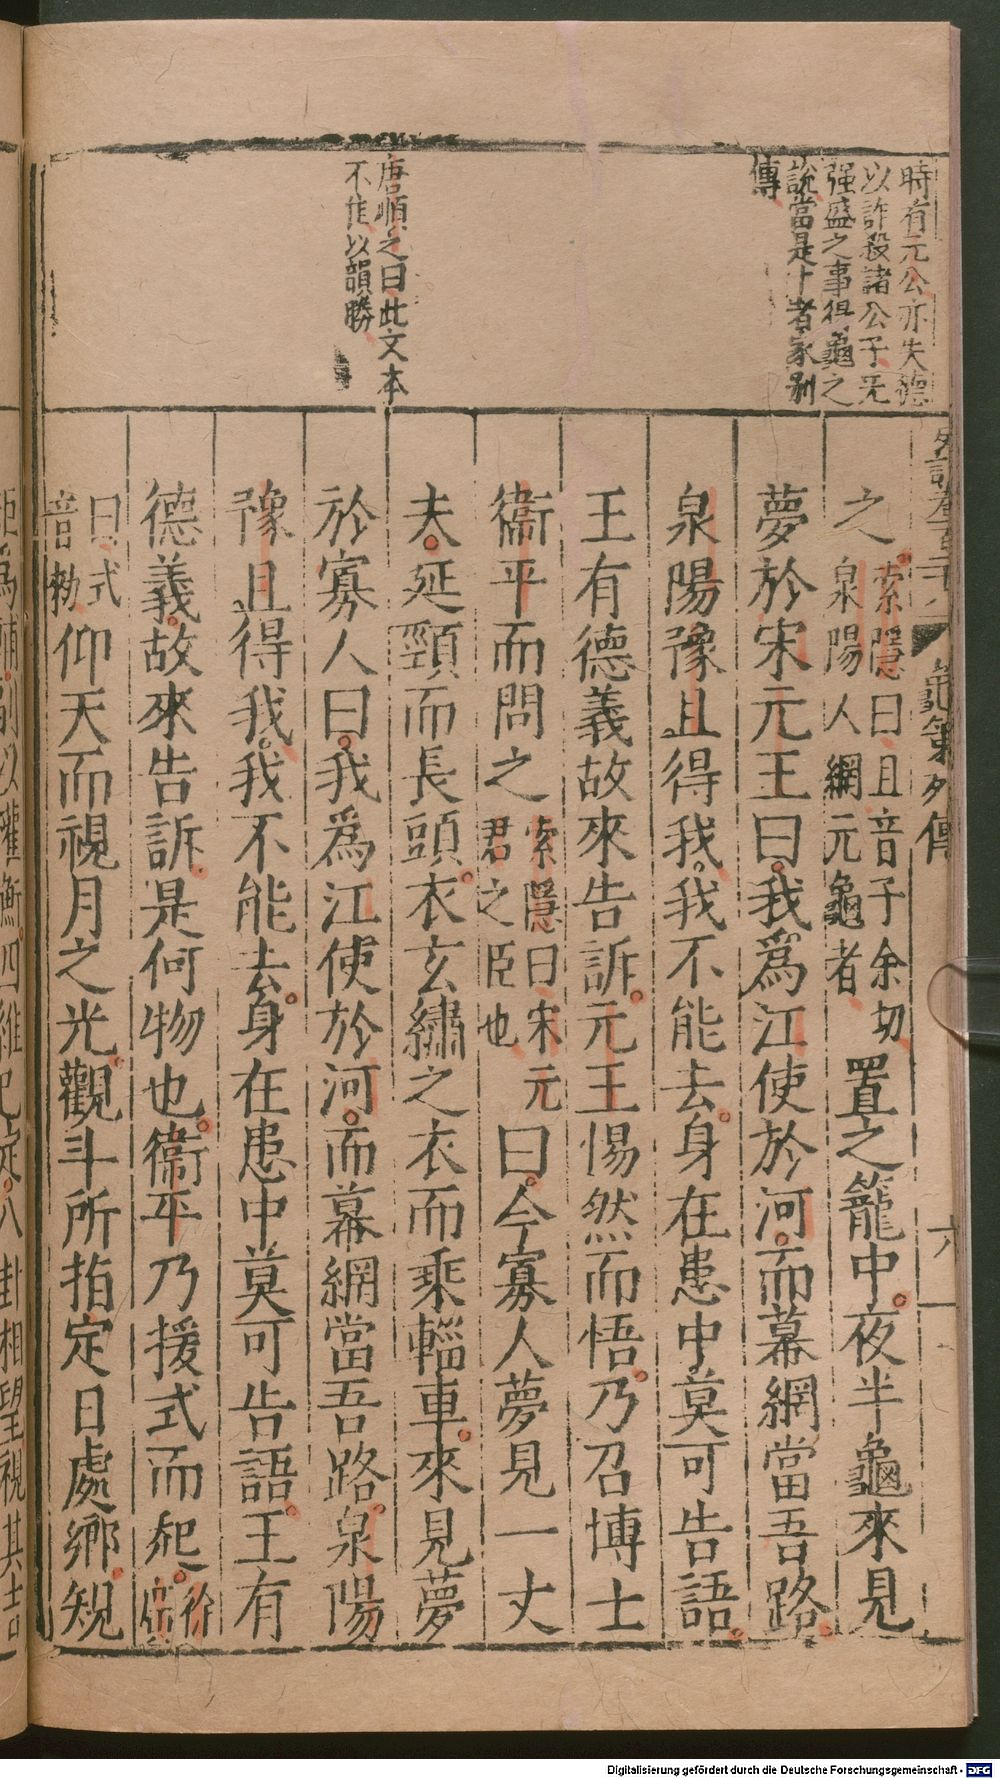 時有元公亦失德
以詐殺諸公子无
强盛之事得龜之
說當是卜者家別
傳
唐順之曰此文本
不能以韻勝
史記卷一百二十八 龜筴列傳 六
之 索隱曰且音子余切
泉陽人網元龜者 置之籠中夜半龜來見
夢於宋元王曰我爲江使於河而幕網當吾路
泉陽豫且得我我不能去身在患中莫可告語
王有德義故來告訴元王惕然而悟乃召博士
衞平而問之 索隱曰宋元
君之臣也 曰今寡人夢見一丈
夫延頸而長頭衣玄繡之衣而乘輜車來見夢
於寡人曰我爲江使於河而幕網當吾路泉陽
豫且得我我不能去身在患中莫可告語王有
德義故來告訴是何物也衞平乃援式而起 徐
廣
曰式
音勑 仰天而視月之光觀斗所指定日處鄉規
矩爲輔副以權衡四維已定八卦相望視其吉
Digitalisierung gefördert durch die Deutsche Forschungsgemeinschaft - DFG